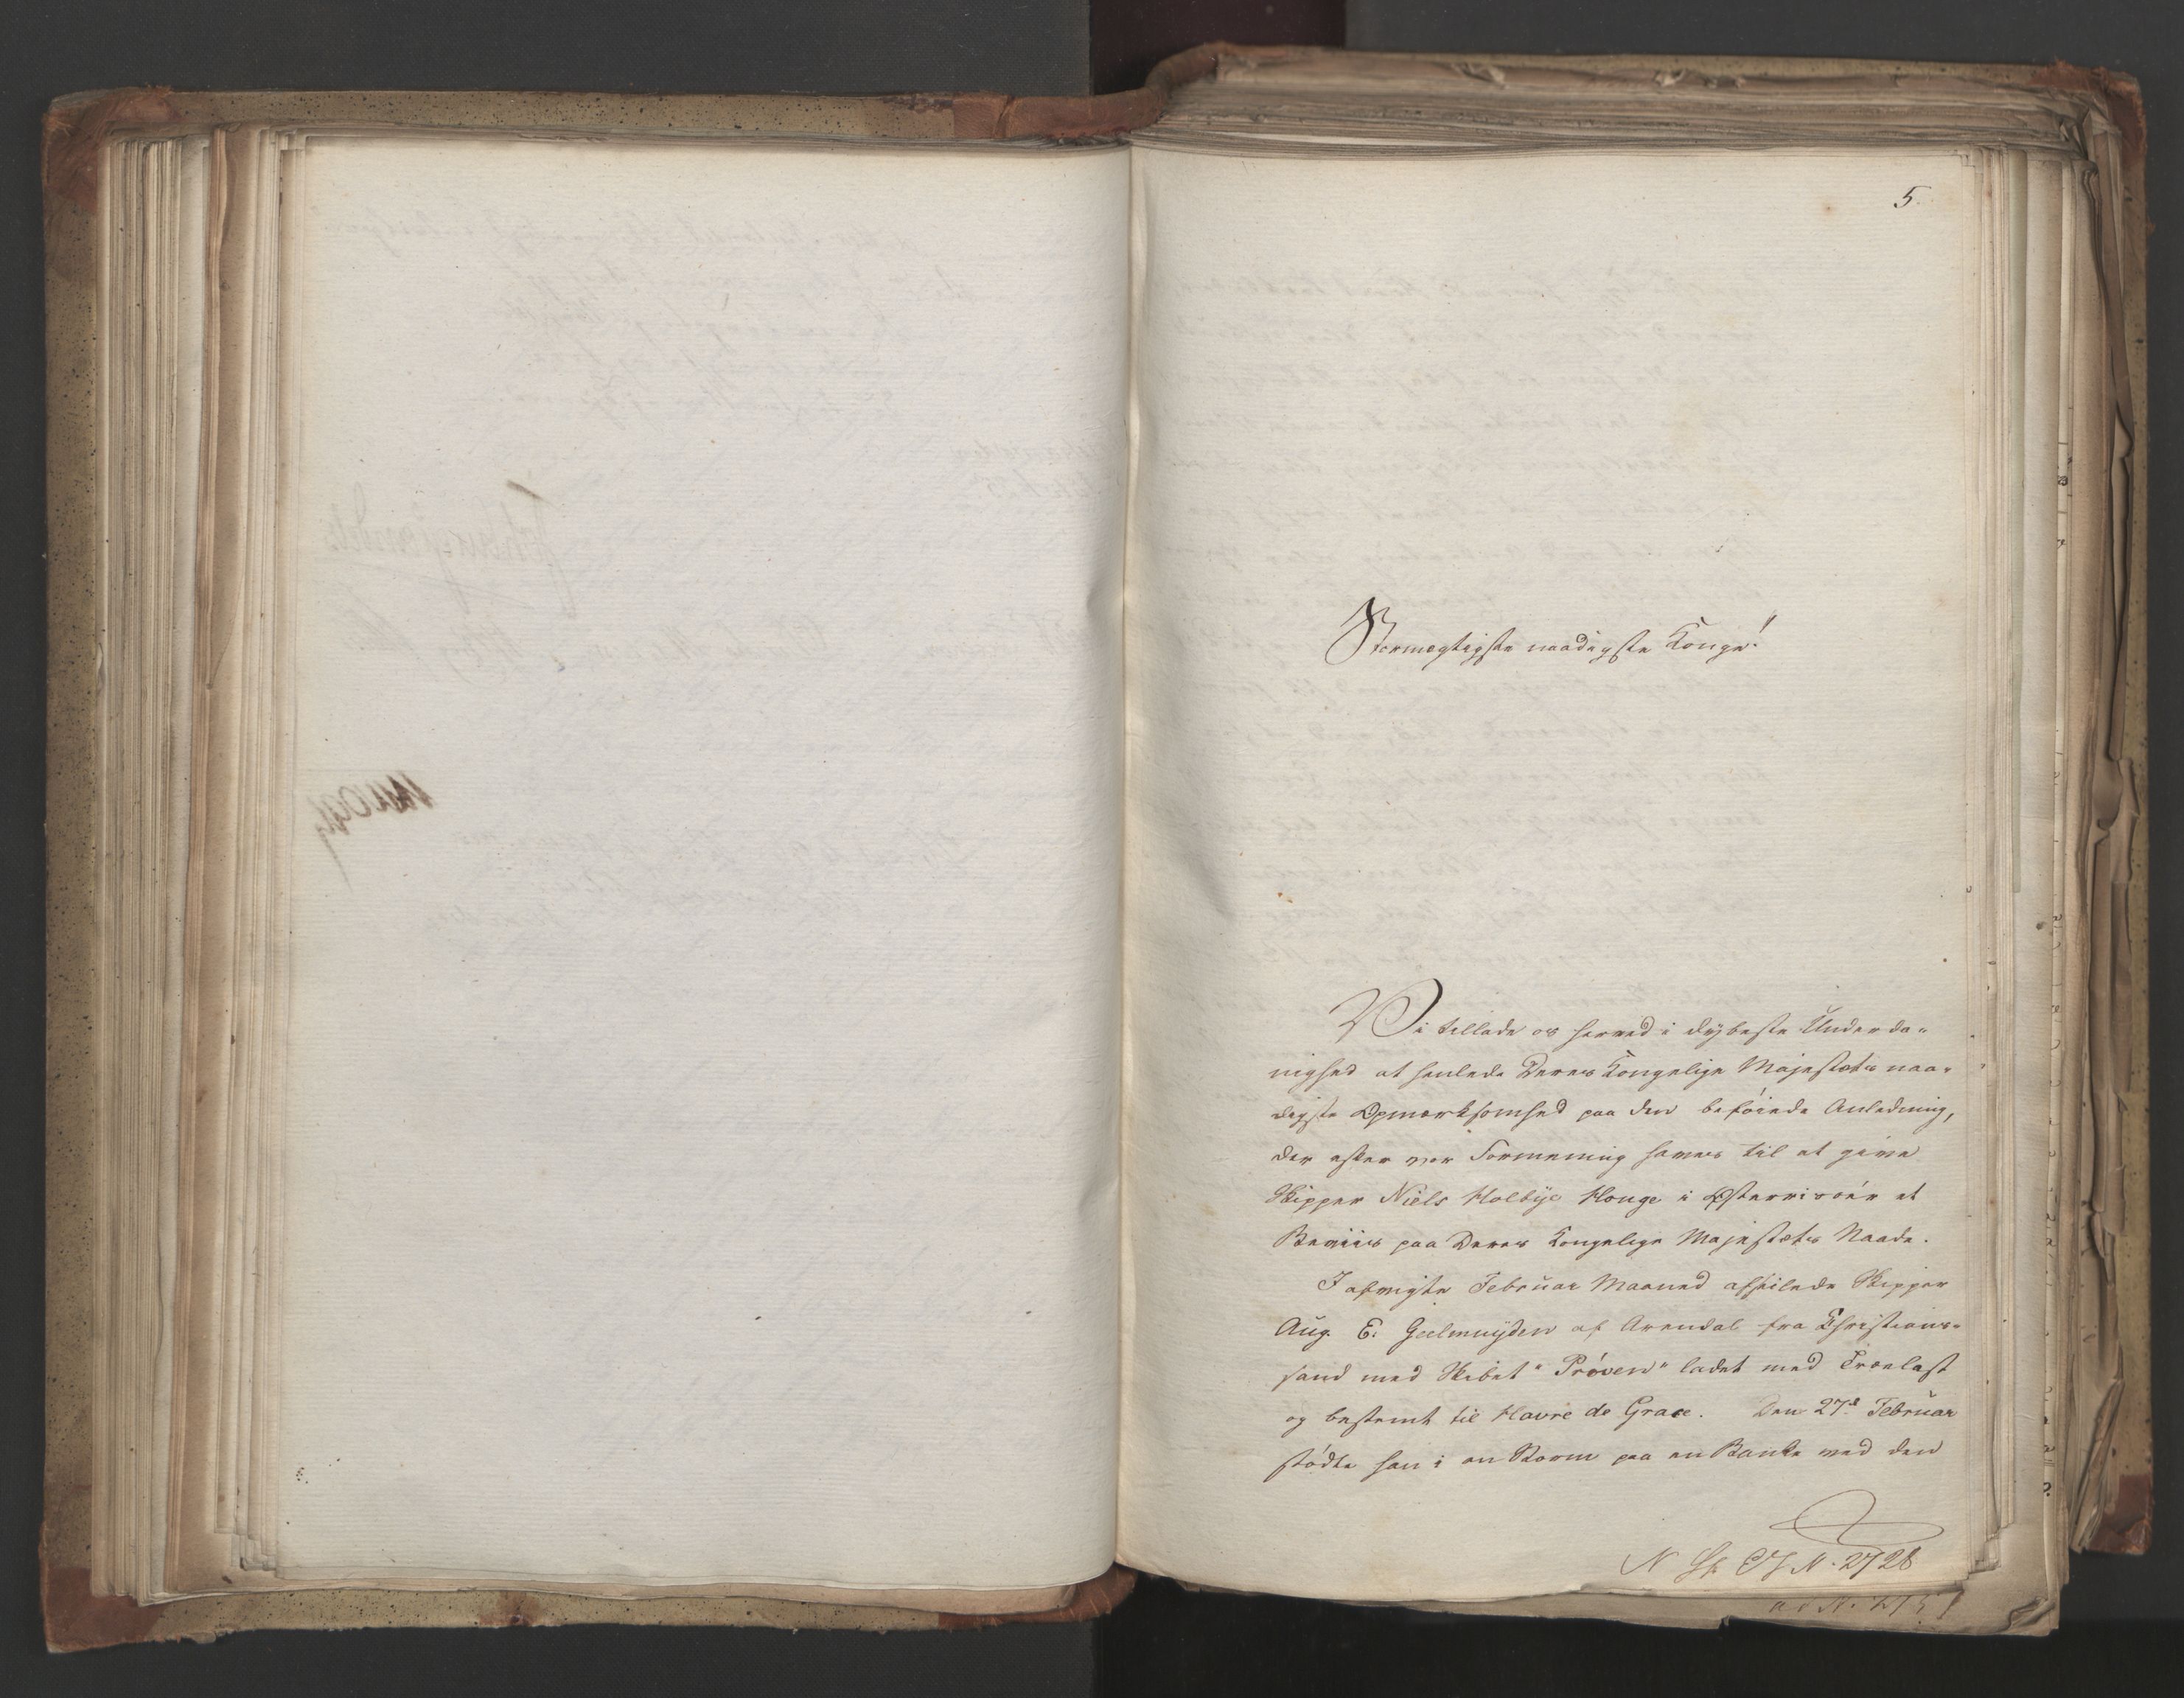 5.
Stormægtigste naadigste Konge!
Vi tillade os herved i dybeste Underda-
nighed at henlede Deres Kongelige Majestæts naa-
digste Opmærksomhed paa den beföiede Anledning,
der efter vor Formening haves til at give
Skipper Niels Holbye Houge i Østerrisöer et
Beviis paa Deres Kongelige Majestæts Naade.
I afvigte Februar Maaned afseilede Skipper
Aug. E. Geelmuyden af Arendal fra Christians-
sand med Skibet "Pröven" ladet med Trælast
og bestemt til Havre de Grace. Den 27d Februar
stödte han i en Storm paa en Banke ved den
N. 2728
ad N.